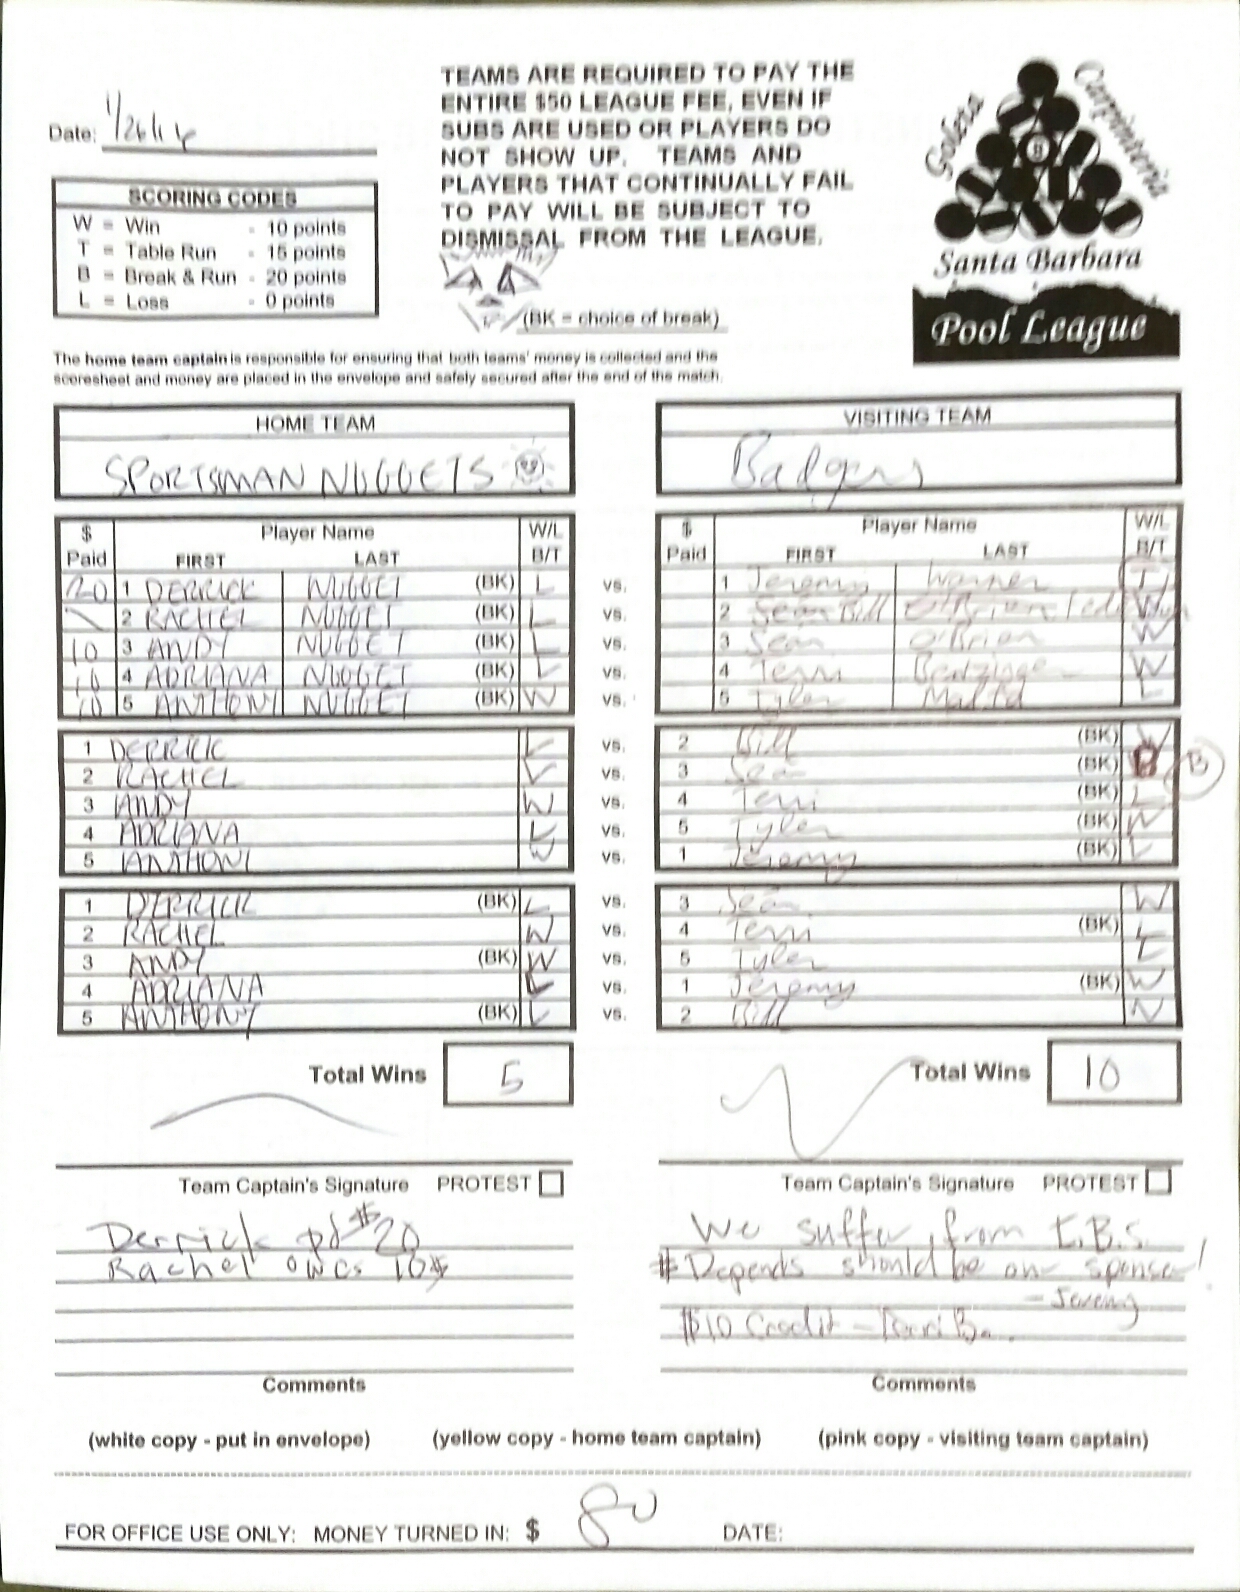 Date: 1/26/16
TEAMS ARE REQUIRED TO PAY THE
ENTIRE $50 LEAGUE FEE, EVEN IF
SUBS ARE USED OR PLAYERS DO
NOT SHOW UP. TEAMS AND
PLAYERS THAT CONTINUALLY FAIL
TO PAY WILL BE SUBJECT TO
DISMISSAL FROM THE LEAGUE.
(BK = choice of break)
SCORING CODES
W = Win - 10 points
T = Table Run - 15 points
B = Break & Run - 20 points
L = Loss - 0 points
Goleta
Carpinteria
8
Santa Barbara
Pool League
The home team captain is responsible for ensuring that both teams' money is collected and the
scoresheet and money are placed in the envelope and safely secured after the end of the match.
HOME TEAM VISITING TEAM
SPORTSMAN NUGGETS Badgers
$ Player Name W/L $ Player Name W/L
Paid FIRST LAST B/T Paid FIRST LAST B/T
20 1 DERRICK NUGGET (BK) L vs. 1 Jeremy Warner T
2 RACHEL NUGGET L vs. 2 Bill W
10 3 ANDY NUGGET (BK) L vs. 3 Sean O'Brian W
10 4 ADRIANA NUGGET L vs. 4 Terri W
10 5 ANTHONY NUGGET (BK) W vs. 5 Tyler L
1 DERRICK L vs. 2 Bill (BK) W
2 RACHEL L vs. 3 Sean (BK) B B
3 ANDY W vs. 4 Terri (BK) L
4 ADRIANA L vs. 5 Tyler (BK) W
5 ANTHONY W vs. 1 Jeremy (BK) L
1 DERRICK (BK) L vs. 3 Sean W
2 RACHEL W vs. 4 Terri (BK) L
3 ANDY (BK) W vs. 5 Tyler L
4 ADRIANA L vs. 1 Jeremy (BK) W
5 ANTHONY (BK) L vs. 2 Bill W
Total Wins 5 Total Wins 10
Team Captain's Signature PROTEST Team Captain's Signature PROTEST
Derrick pd $20
Rachel owes 10$
We suffer from I.B.S.
Depends should be our sponser!
- Jeremy
$10 Credit - Terri B.
Comments Comments
(white copy - put in envelope) (yellow copy - home team captain) (pink copy - visiting team captain)
FOR OFFICE USE ONLY: MONEY TURNED IN: $ 80 DATE: